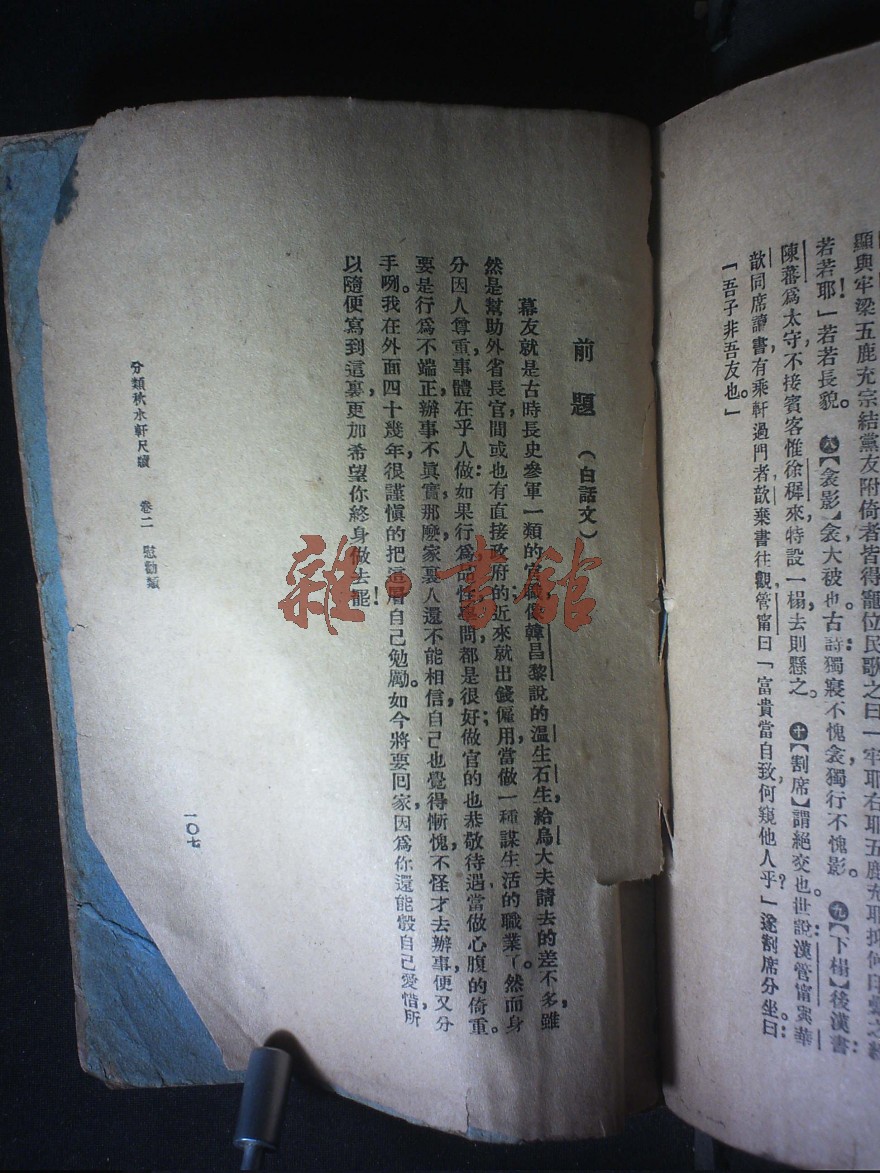 顯與牢梁五鹿充宗結黨友附倚者皆得寵位民歌之曰「牢耶石耶五鹿充耶
若若耶!」若若長貌。㈧【衾影】衾大被也。古詩:獨寢不愧衾,獨行不愧影。㈨【下榻】後漢書:
陳蕃為太守,不接賓客,惟徐穉來,特設一榻,去則懸之。㈩【割席】謂絕交也。世說:漢管甯與華
歆同席讀書,有乘軒過門者,歆棄書往觀,管甯曰「富貴當自致,何窺他人乎?」遂割席分坐曰:
「吾子非吾友也。」
前題(白話文)
幕友就是古時長史參軍一類的官職,像韓昌黎說的溫生石生,給烏大夫請去的差不多,雖
然是幫助外省長官,間或也有直接政府的;近來就出錢僱用,當做一種謀生活的職業了。然而身
分因人尊重,事體在乎人做:如果行為品性學問,都是很好,做官的也恭敬待遇,當做心腹的倚重。
要是行為不端正,辦事不真實,那麼家裏人還不能相信,自己也覺得慚愧,不怪才去辦事,便又分
手咧。我在外面四十幾年,很謹慎的把這層自己勉勵。如今將要回家,因為你還能彀自己愛惜,所
以隨便寫到這裏,更加希望你終身做去罷!
分類秋水軒尺牘 卷二 慰勸類
一〇七
雜·書館